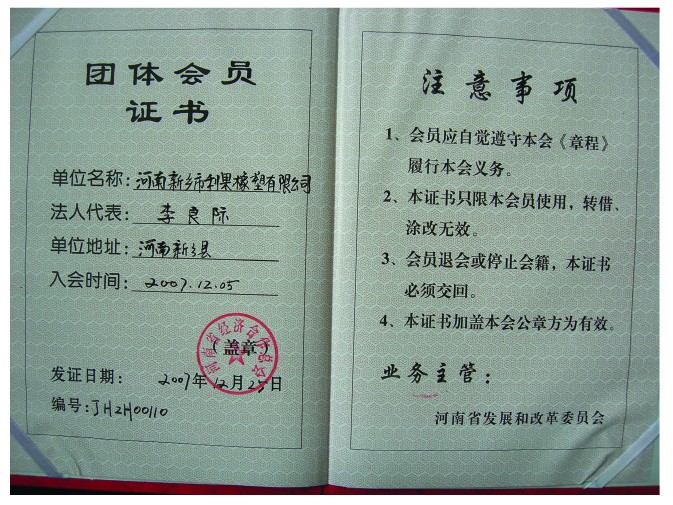 团体会员
证书
单位名称：河南新乡市利果橡塑有限公司
法人代表：李良际
单位地址：河南新乡县
入会时间：2007.12.05
（盖章）
河南省经济合作总会
发证日期：2007年12月25日
编号：JHZH00110
注意事项
1、会员应自觉遵守本会《章程》
履行本会义务。
2、本证书只限本会员使用，转借、
涂改无效。
3、会员退会或停止会籍，本证书
必须交回。
4、本证书加盖本会公章方为有效。
业务主管：
河南省发展和改革委员会